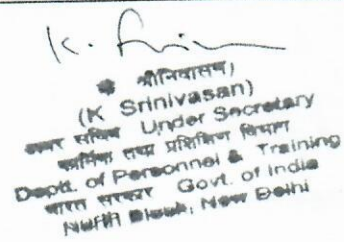 K. Srini
के श्रीनिवासन)
(K Srinivasan)
अवर सचिव Under Secretary
कार्मिक तथा प्रशिक्षण विभाग
Deptt. of Personnel & Training
भारत सरकार Govt. of India
North Block, New Delhi